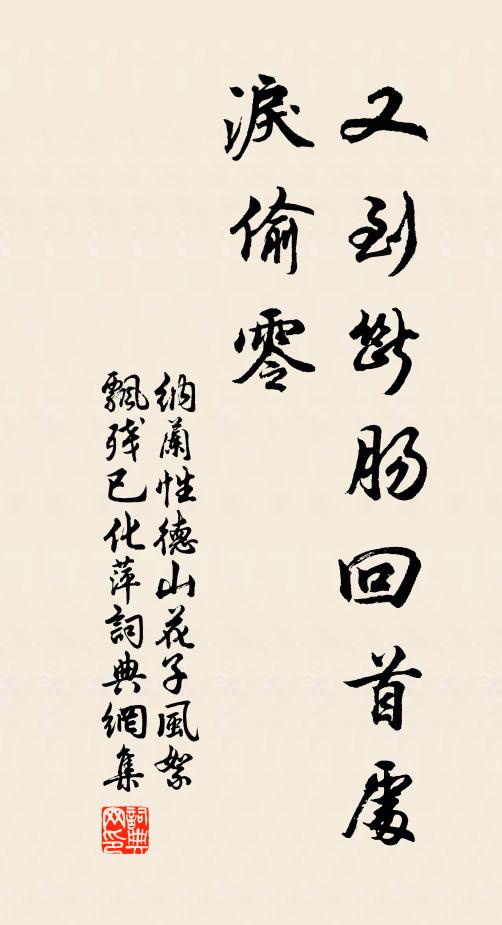 又到斷肠回首處
淚偷零
納蘭性德山花子風絮
飄殘已化萍詞典網集
詞典
网印